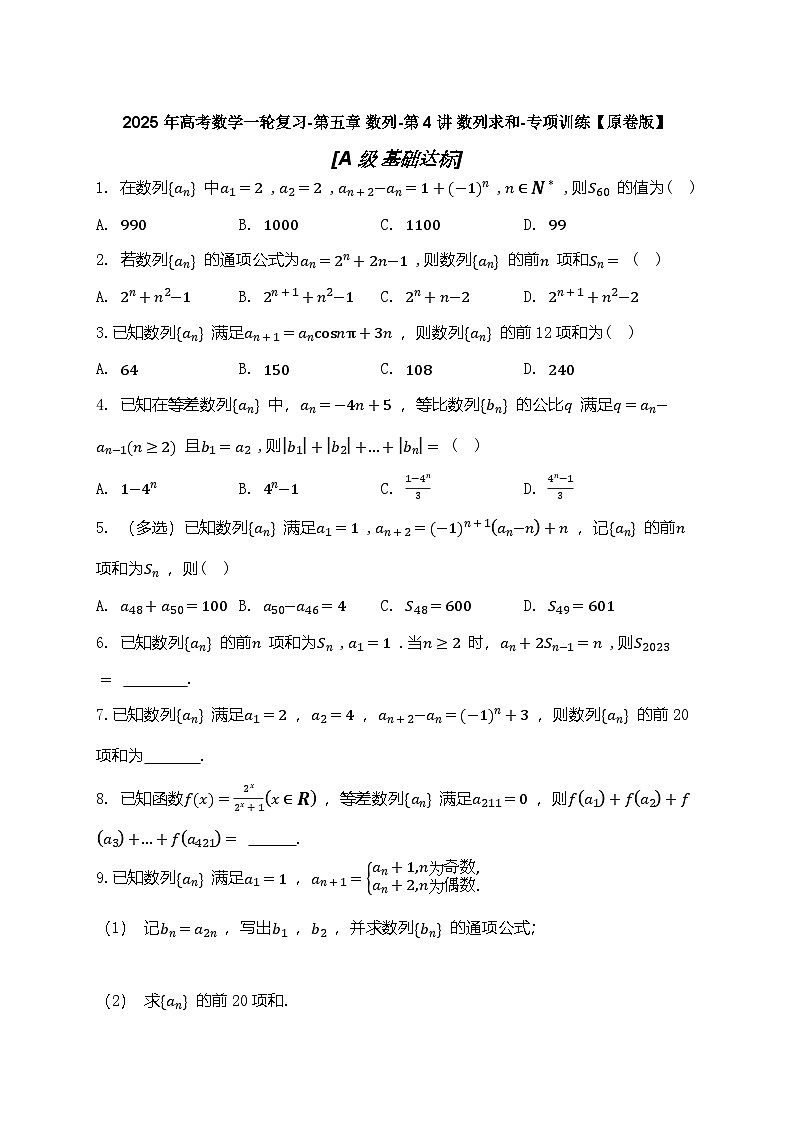 2025年高考数学一轮复习-第五章 数列-第4讲 数列求和-专项训练【原卷版】
[A级 基础达标]
1. 在数列{aₙ} 中a₁=2 ,a₂=2 ,aₙ₊₂−aₙ=1+(−1)ⁿ ,n∈N* ,则S₆₀ 的值为( )
A. 990 B. 1000 C. 1100 D. 99
2. 若数列{aₙ} 的通项公式为aₙ=2ⁿ+2n−1 ,则数列{aₙ} 的前n 项和Sₙ= ( )
A. 2ⁿ+n²−1 B. 2ⁿ⁺¹+n²−1 C. 2ⁿ+n−2 D. 2ⁿ⁺¹+n²−2
3.已知数列{aₙ} 满足aₙ₊₁=aₙcosnπ+3n , 则数列{aₙ} 的前12项和为( )
A. 64 B. 150 C. 108 D. 240
4. 已知在等差数列{aₙ} 中, aₙ=−4n+5 , 等比数列{bₙ} 的公比q 满足q=aₙ−
aₙ₋₁(n≥2) 且b₁=a₂ ,则|b₁|+|b₂|+…+|bₙ|= ( )
A. 1−4ⁿ B. 4ⁿ−1 C. (1−4ⁿ)/3 D. (4ⁿ−1)/3
5. (多选)已知数列{aₙ} 满足a₁=1 ,aₙ₊₂=(−1)ⁿ⁺¹(aₙ−n)+n , 记{aₙ} 的前n
项和为Sₙ , 则( )
A. a₄₈+a₅₀=100 B. a₅₀−a₄₆=4 C. S₄₈=600 D. S₄₉=601
6. 已知数列{aₙ} 的前n 项和为Sₙ ,a₁=1 .当n≥2 时, aₙ+2Sₙ₋₁=n ,则S₂₀₂₃
= ________.
7.已知数列{aₙ} 满足a₁=2 , a₂=4 , aₙ₊₂−aₙ=(−1)ⁿ+3 , 则数列{aₙ} 的前20
项和为_______.
8. 已知函数f(x)=2ˣ/(2ˣ+1)(x∈R) , 等差数列{aₙ} 满足a₂₁₁=0 , 则f(a₁)+f(a₂)+f
(a₃)+…+f(a₄₂₁)= ______.
9.已知数列{aₙ} 满足a₁=1 , aₙ₊₁={aₙ+1,n为奇数,
aₙ+2,n为偶数.
(1) 记bₙ=a₂ₙ , 写出b₁ , b₂ , 并求数列{bₙ} 的通项公式;
(2) 求{aₙ} 的前20项和.